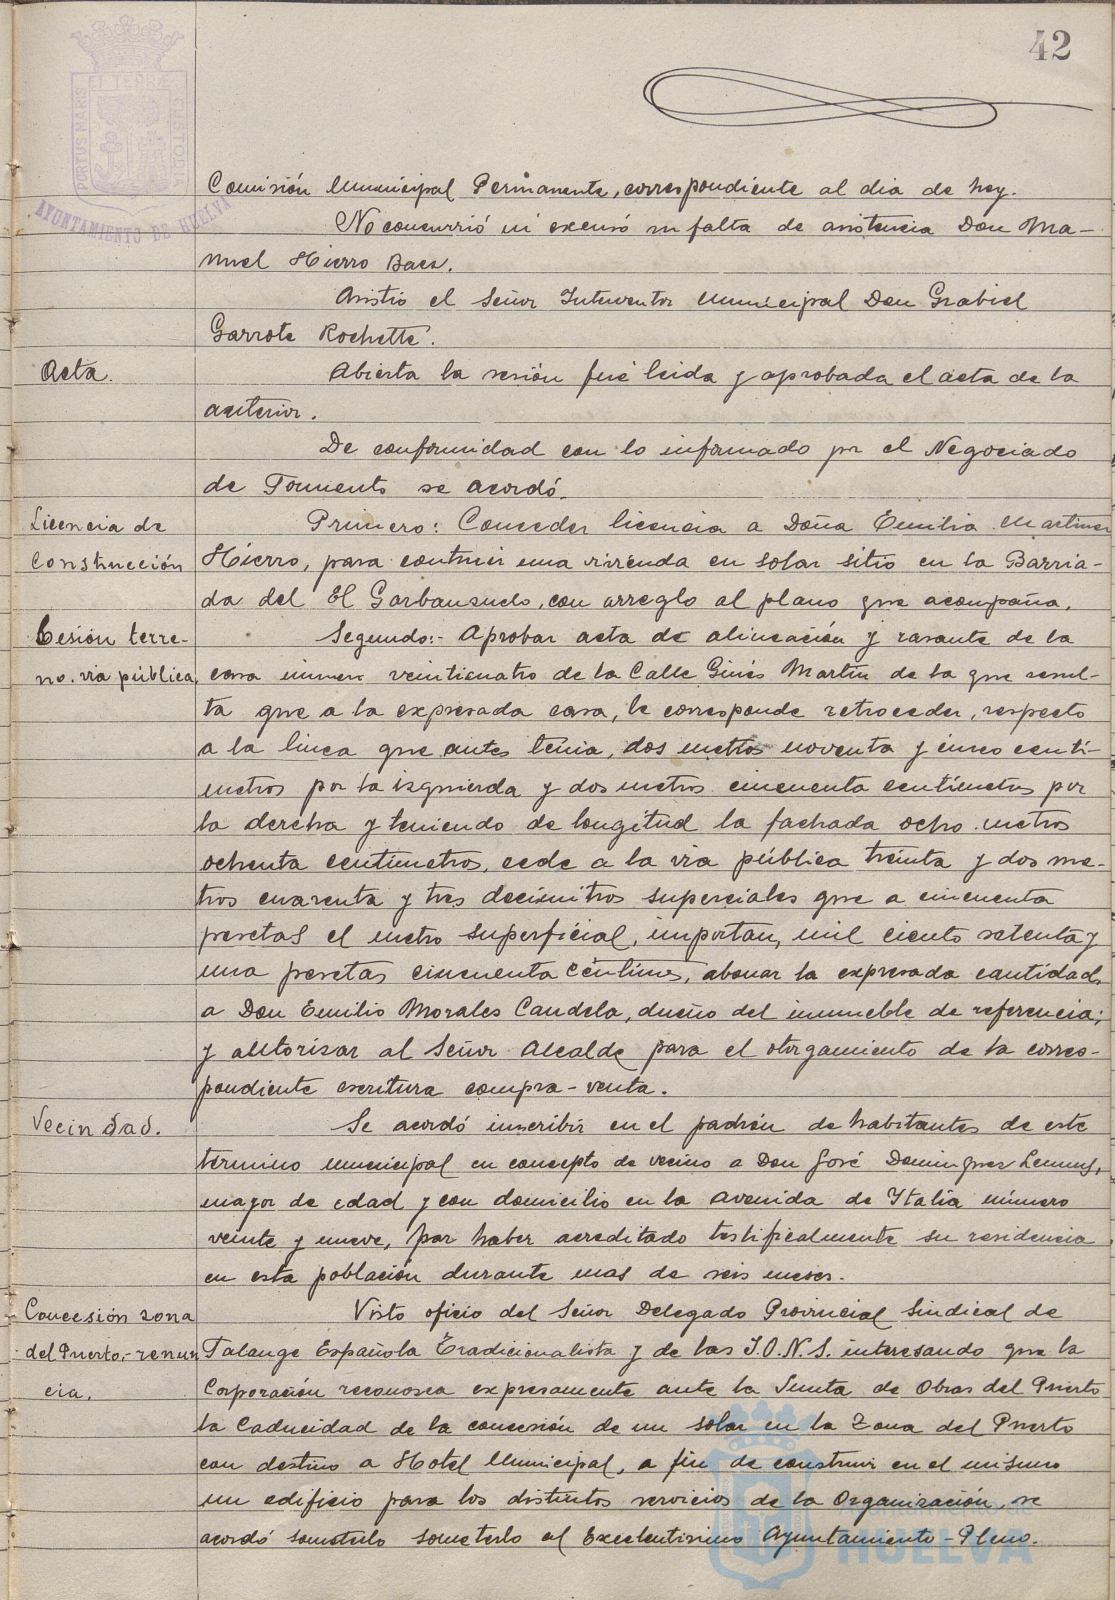 42
PORTUS MARIS ET TERRÆ CUSTODIA
AYUNTAMIENTO DE HUELVA
Comisión Municipal Permanente, correspondiente al dia de hoy.
No concurrió ni excusó su falta de asistencia Don Ma-
nuel Hierro Baez.
Asistió el Señor Interventor Municipal Don Grabiel
Garrote Rochette.
Acta.
Abierta la sesión fué leida y aprobada el acta de la
anterior.
De conformidad con lo informado por el Negociado
de Fomento se acordó.
Licencia de
Construcción
Primero: Conceder licencia a Doña Emilia Martinez
Hierro, para contruir una vivienda en solar sitio en la Barria-
da del El Garbanzuelo, con arreglo al plano que acompaña.
Cesión terre-
no. via pública,
Segundo:- Aprobar acta de alineación y rasante de la
casa número veinticuatro de la Calle Ginés Martín de la que resul-
ta que a la expresada casa, le corresponde retroceder, respecto
a la linea que antes tenia, dos metros noventa y cinco centi-
metros por la izquierda y dos metros cincuenta centímetros por
la derecha y teniendo de longitud la fachada ocho metros
ochenta centimetros, cede a la via pública treinta y dos me-
tros cuarenta y tres decimitros superciales que a cincuenta
pesetas el metro superficial, importan, mil ciento setenta y
una pesetas cincuenta céntimos, abonar la expresada cantidad
a Don Emilio Morales Candela, dueño del inmueble de referencia;
y autorizar al Señor Alcalde para el otorgamiento de la corres-
pondiente escritura compra-venta.
Vecindad.
Se acordó inscribir en el padrón de habitantes de este
término municipal en concepto de vecino a Don José Dominguez Lemus,
mayor de edad y con domicilio en la Avenida de Italia número
veinte y nueve, por haber acreditado testificalmente su residencia
en esta población durante mas de seis meses.
Concesión zona
del Puerto,- renun
cia.
Visto oficio del Señor Delegado Provincial Sindical de
Falange Española Tradicionalista y de las J.O.N.S. interesando que la
Corporación reconozca expresamente ante la Junta de Obras del Puerto
la Caducidad de la concesión de un solar en la Zona del Puerto
con destino a Hotel Municipal, a fin de construir en el mismo
un edificio para los distintos servicios de la Organización, se
acordó someterlo someterlo al Excelentisimo Ayuntamiento-Pleno.
Ayuntamiento de
HUELVA